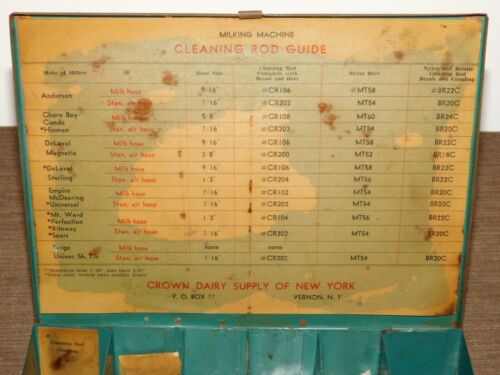 MILKING MACHINE
CLEANING ROD GUIDE
Make of Milker Hose Size Cleaning Rod Complete with Brush and Burr Metal Burr Nylon and Bristle Cleaning Rod Brush and Coupling
Anderson Milk hose 9/16" #CR106 #MT58 #BR22C
Stan. air hose 7/16" #CR202 MT54 BR20C
Chore Boy Milk hose 5/8" #CR108 MT60 BR24C
Conde
*Hinman Stan. air hose 7/16" #CR202 MT54 BR20C
DeLaval Milk hose 9/16" #CR106 MT58 BR22C
Magnetic Stan. air hose 3/8" #CR200 MT52 BR18C
*DeLaval Milk hose 9/16" #CR106 MT58 BR22C
Sterling Stan. air hose 1/2" #CR204 MT56 BR22C
Empire Milk hose 7/16" #CR102 MT54 BR20C
McDeering
*Universal Stan. air hose 7/16" #CR202 MT54 BR20C
*Mt. Ward Milk hose 1/2" #CR104 MT56 BR22C
*Perfection
*Riteway Stan. air hose 7/16" #CR202 MT54 BR20C
*Sears
Surge Milk hose none none
Univer. Sh. Tk Stan. air hose 7/16" #CR202 MT54 BR20C
CROWN DAIRY SUPPLY OF NEW YORK
P. O. BOX 77 VERNON, N. Y.
Cleaning Rod
Coupling